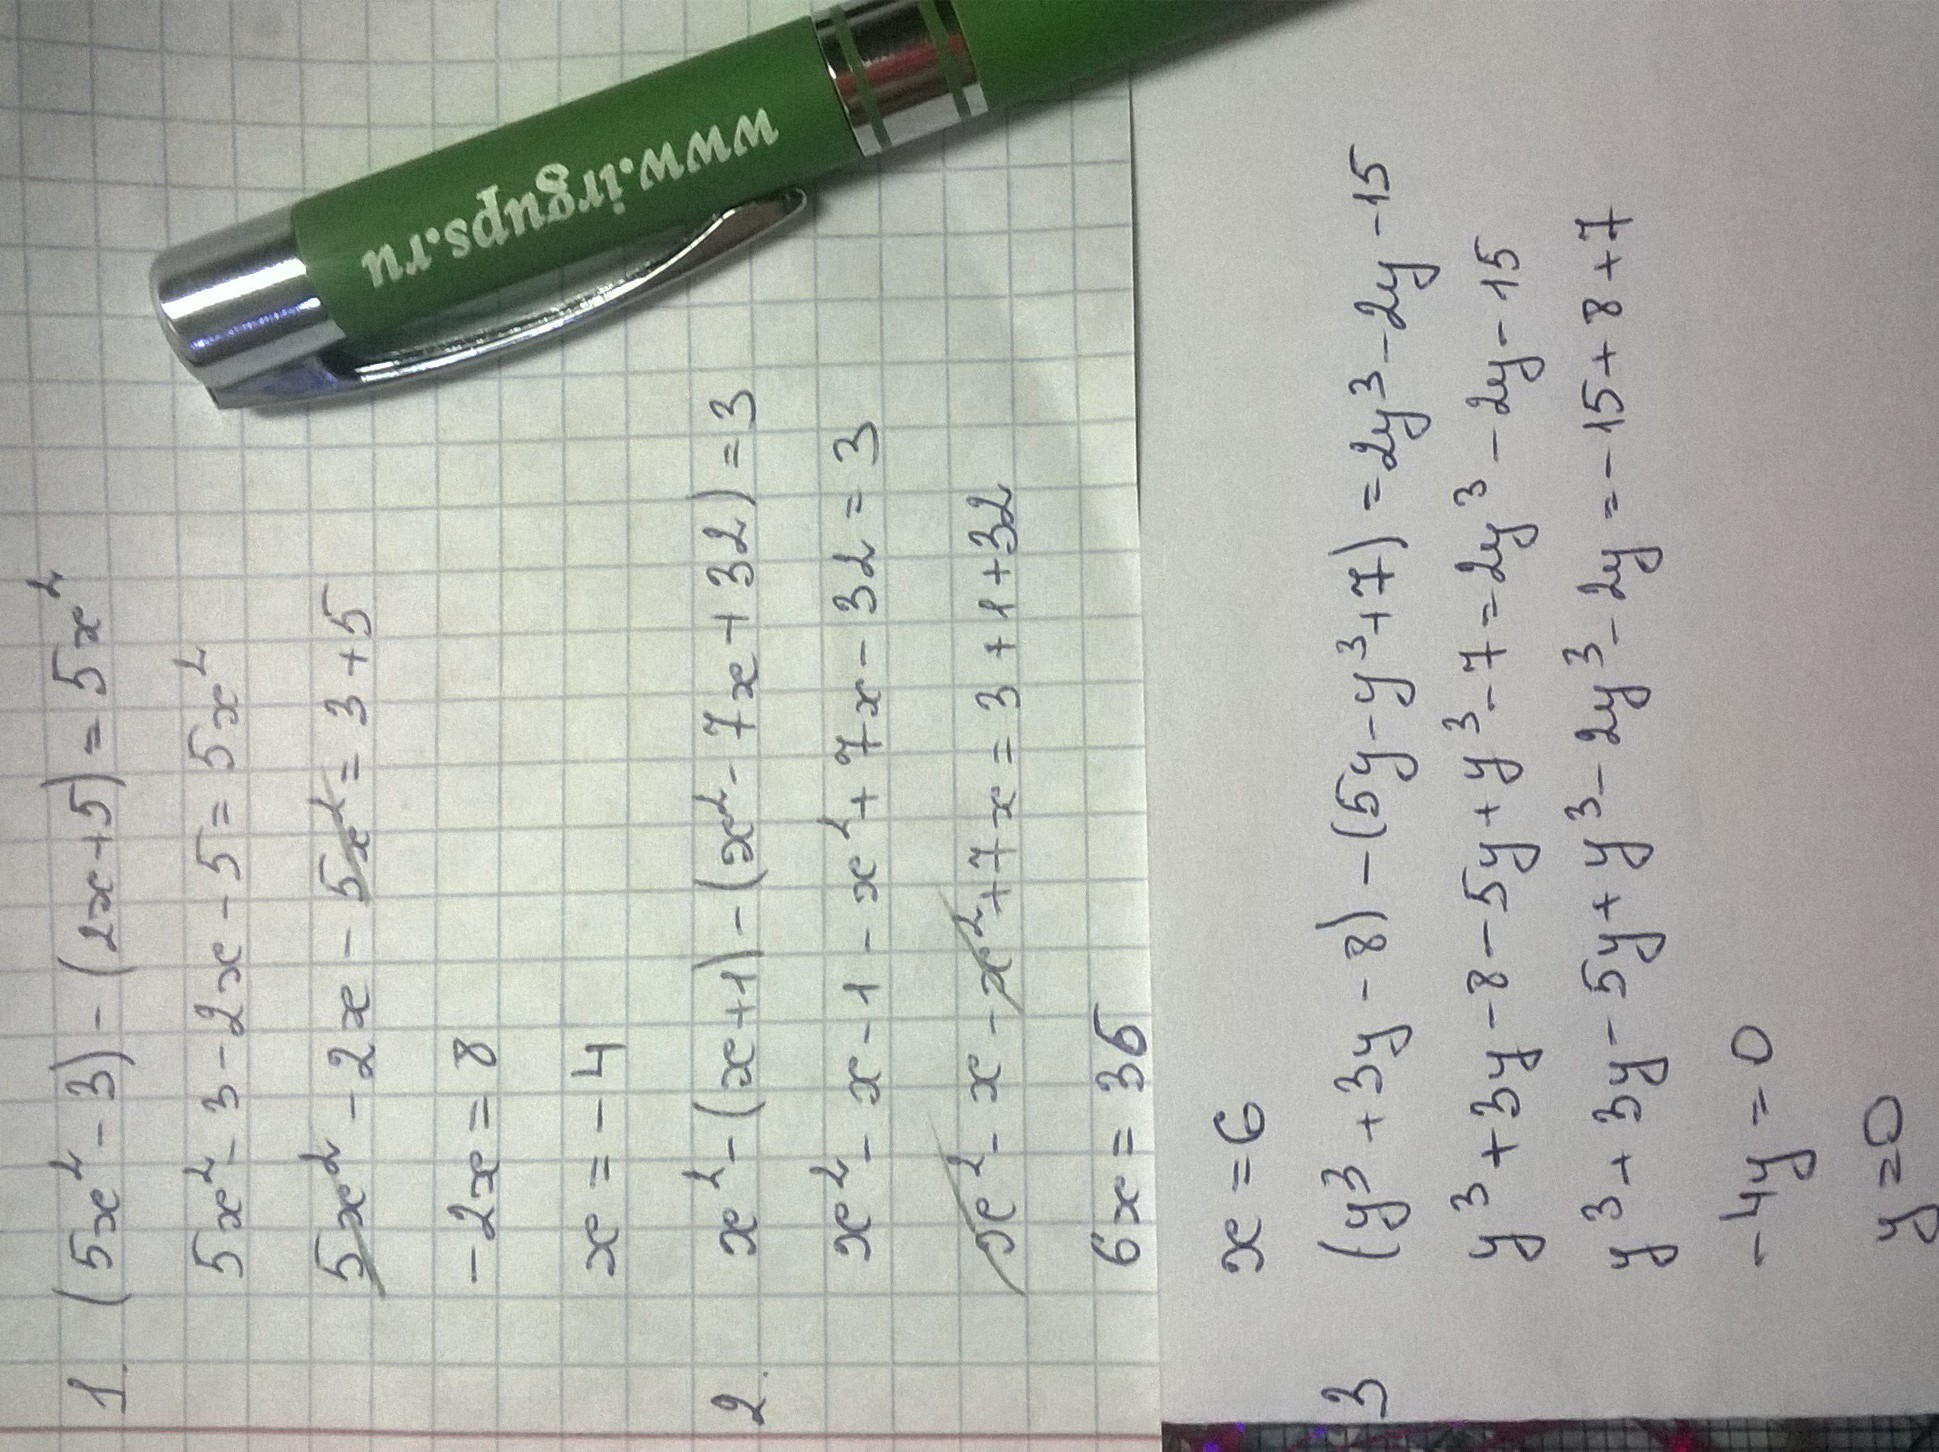 1. (5x² - 3) - (2x + 5) = 5x²
5x² - 3 - 2x - 5 = 5x²
5x² - 2x - 5x² = 3 + 5
-2x = 8
x = -4
2. x² - (x + 1) - (x² - 7x + 32) = 3
x² - x - 1 - x² + 7x - 32 = 3
x² - x - x² + 7x = 3 + 1 + 32
6x = 36
x = 6
3 (y³ + 3y - 8) - (5y - y³ + 7) = 2y³ - 2y - 15
y³ + 3y - 8 - 5y + y³ - 7 = 2y³ - 2y - 15
y³ + 3y - 5y + y³ - 2y³ - 2y = -15 + 8 + 7
-4y = 0
y = 0
www.irgups.ru